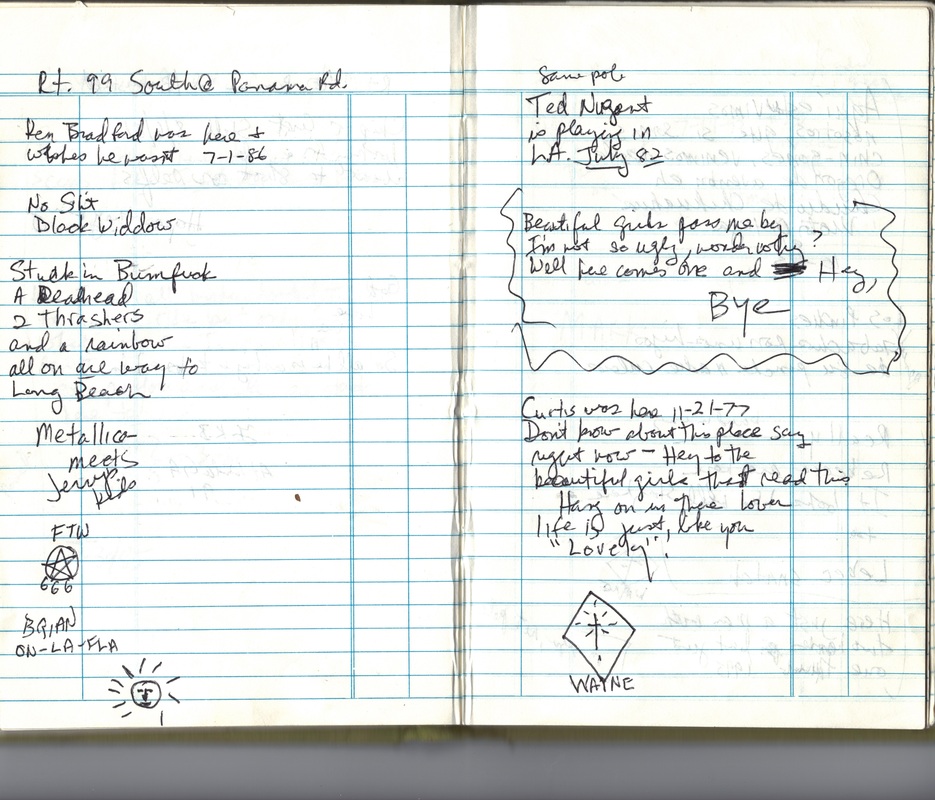 Rt. 99 South @ Panama Rd.
Ken Bradford was here +
wishes he wasnt 7-1-86
No Shit
Black Widdow
Stuck in Bumfuck
A Deadhead
2 Thrashers
and a rainbow
all on are way to
Long Beach
Metallica
meets
Jerrys
kids
FTW
666
BRIAN
ON-LA-FLA
Same pole
Ted Nugent
is playing in
LA. July 82
Beautiful girls pass me by
I'm not so ugly, wonder why?
Well here comes one and Hey,
Bye
Curtis was here 11-21-77
Don't know about this place say
right now - Hey to the
beautiful girls that read this
Hang on in there lover
life is just, like you
"Lovely"!
WAYNE